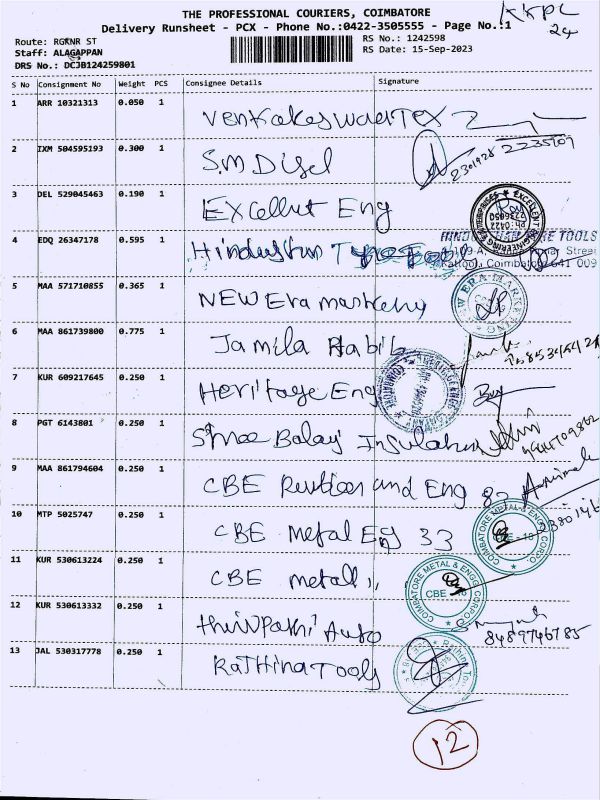 THE PROFESSIONAL COURIERS, COIMBATORE
Delivery Runsheet - PCX - Phone No.:0422-3505555 - Page No.:1
KKPL
24
Route: RGKNR ST
RS No.: 1242598
Staff: ALAGAPPAN
RS Date: 15-Sep-2023
DRS No.: DCJB124259801
S No Consignment No Weight PCS Consignee Details Signature
1 ARR 10321313 0.050 1 Venkateswara Tex
2 IXM 504595193 0.300 1 S.M Disel 2301928 2235109
3 DEL 529045463 0.190 1 Excellent Eng
4 EDQ 26347178 0.595 1 Hindustan Type Tools
5 MAA 571710855 0.365 1 NEW Era marketing
6 MAA 861739800 0.775 1 Jamila Habib
7 KUR 609217645 0.250 1 Heritage Eng
8 PGT 6143801 0.250 1 Shree Balaji Insulation
9 MAA 861794604 0.250 1 CBE and Eng
10 MTP 5025747 0.250 1 CBE metal Eng 33
11 KUR 530613224 0.250 1 CBE metal ,,
12 KUR 530613332 0.250 1 Auto 8489746785
13 JAL 530317778 0.250 1 Rathina Tools
12